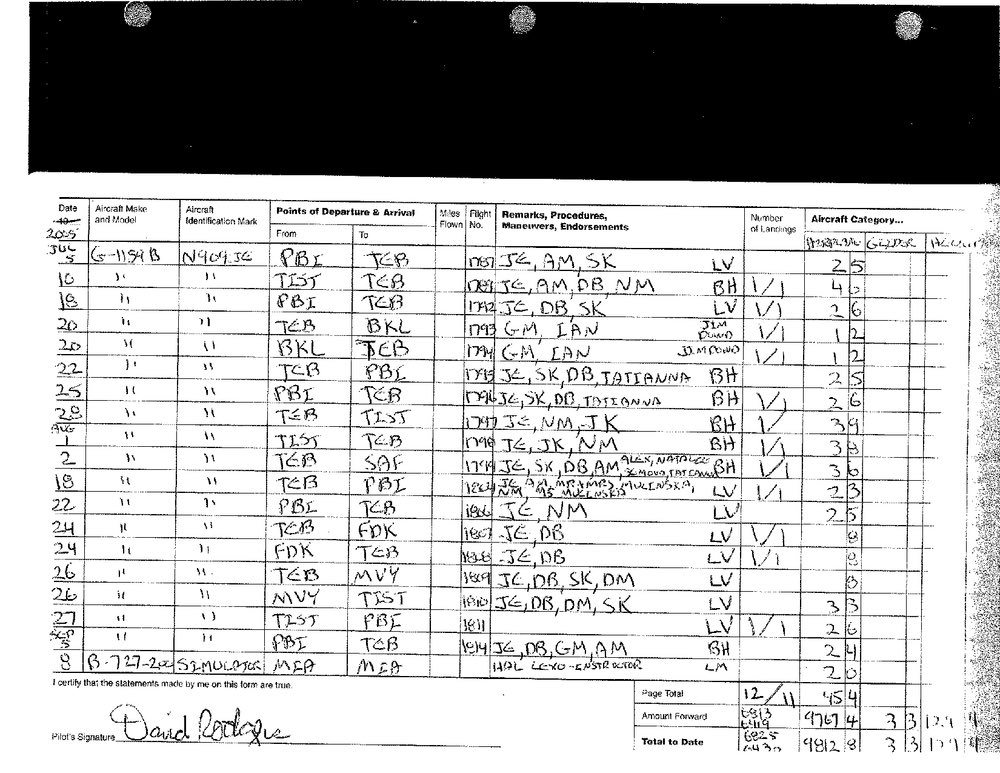 Date Aircraft Make and Model Aircraft Identification Mark Points of Departure & Arrival Miles Flown Flight No. Remarks, Procedures, Maneuvers, Endorsements Number of Landings Aircraft Category...
2005 From To AIRPLANE GLIDER
JUL 5 G-1159B N909JE PBI TEB 1787 JE, AM, SK LV 2 5
16 " " TIST TEB JE, AM, DB, NM BH 1/1 4
18 " " PBI TEB 1792 JE, DB, SK LV 1/1 2 6
20 " " TEB BKL 1793 GM, IAN JIM DOWD 1/1 1 2
20 " " BKL TEB 1794 GM, IAN JIM DOWD 1/1 1 2
22 " " TEB PBI 1795 JE, SK, DB, TATIANNA BH 2 5
25 " " PBI TEB 1796 JE, SK, DB, TATIANNA BH 1/1 2 6
28 " " TEB TIST 1797 JE, NM, JK BH 1/ 3 9
AUG 1 " " TIST TEB 1798 JE, JK, NM BH 1/1 3 8
2 " " TEB SAF 1799 JE, SK, DB, AM, ALEX, BH 1/1 3 6
18 " " TEB PBI JE, AM, MR+MRS MUCINSKA, NM, MS MUCINSKA LV 1/1 2 3
22 " " PBI TEB 1806 JE, NM LV 2 5
24 " " TEB FDK 1807 JE, DB LV 1/1 8
24 " " FDK TEB 1808 JE, DB LV 1/1 8
26 " " TEB MVY 1809 JE, DB, SK, DM LV 8
26 " " MVY TIST 1810 JE, DB, DM, SK LV 3 3
27 " " TIST PBI 1811 LV 1/1 2 6
SEP 5 " " PBI TEB 1814 JE, DB, GM, AM BH 2 4
8 B-727-200 SIMULATOR MIA MIA INSTRUCTOR LM 2 0
I certify that the statements made by me on this form are true.
Page Total 12/11 45 4
Amount Forward 6813 6419 9767 4 3 3
Pilot's Signature David Rodgers
Total to Date 6825 6430 9812 8 3 3